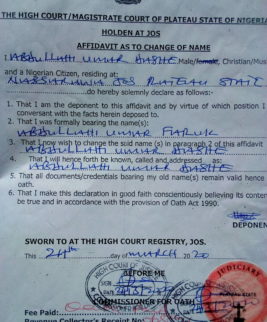 THE HIGH COURT/MAGISTRATE COURT OF PLATEAU STATE OF NIGERIA
HOLDEN AT JOS
AFFIDAVIT AS TO CHANGE OF NAME
I ABDULLAHI UMAR Male/female, Christian/Mus
and a Nigerian Citizen, residing at:
NASSARAWA JOS PLATEAU STATE
do hereby solemnly declare as follows:-
1. That I am the deponent to this affidavit and by virtue of which position I
conversant with the facts herein deposed to.
2. That I was formerly bearing the name(s):
ABDULLAHI UMAR FARUK
3. That I now wish to change the said name (s) in paragraph 2 of this affidavit
ABDULLAHI UMAR
4. That I will hence forth be known, called and addressed as:
ABDULLAHI UMAR
5. That all documents/credentials bearing my old name(s) remain valid hence
oath.
6. That I make this declaration in good faith conscientiously believing its conten
be true and in accordance with the provision of Oath Act 1990.
DEPONEN
SWORN TO AT THE HIGH COURT REGISTRY, JOS.
This 24th day of MARCH 2020
BEFORE ME
HIGH COURT OF
JUDICIARY
PLATEAU STATE
COMMISSIONER FOR OATH
Fee Paid:
Revenue Collector's Receipt No